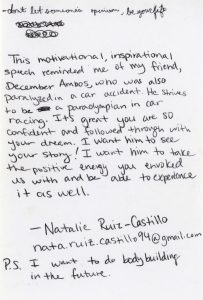 - dont let someone's opinion, be your life
This motivational, inspirational
speech reminded me of my friend,
December Ambos, who was also
paralyzed in a car accident. He strives
to be a paralympian in car
racing. It's great you are so
confident and followed through with
your dream. I want him to see
your story! I want him to take
the positive energy you envoked
us with and be able to experience
it as well.
— Natalie Ruiz-Castillo
nata.ruiz.castillo94@gmail.com
P.S. I want to do bodybuilding
in the future.